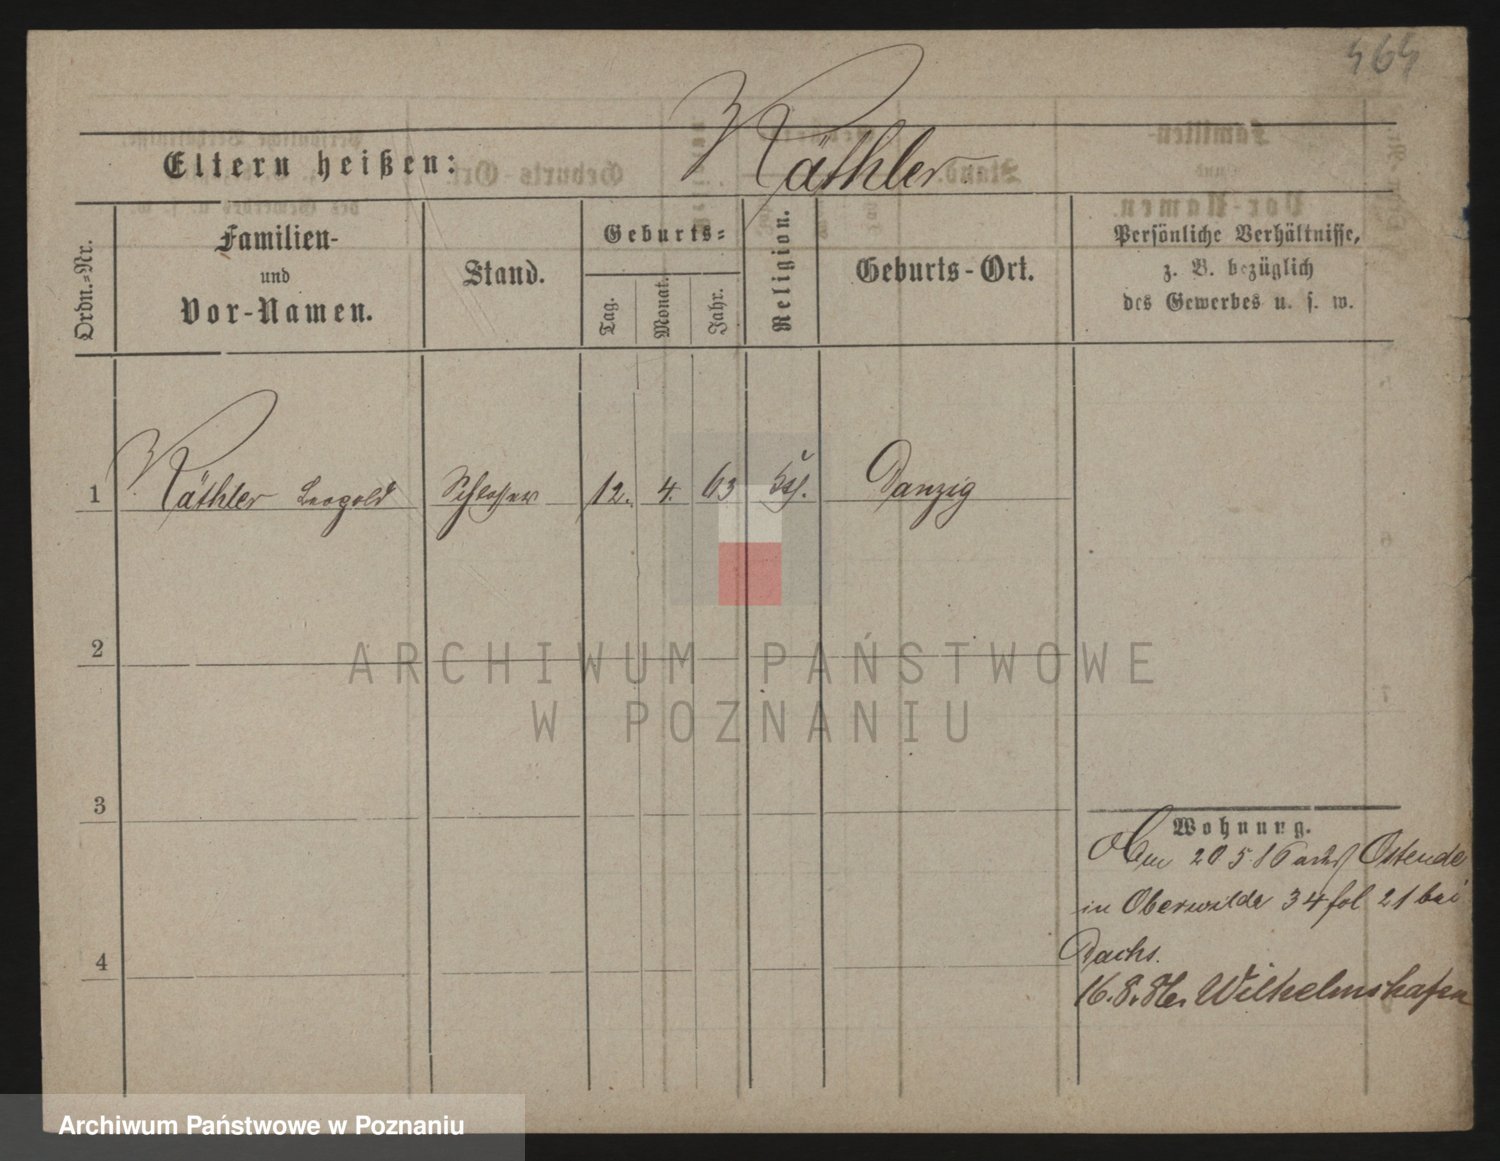 464
Räthler
Eltern heißen:
Ordn.-Nr.
Familien-
und
Vor-Namen.
Stand.
Geburts=
Tag.
Monat.
Jahr.
Religion.
Geburts-Ort.
Persönliche Verhältnisse,
z. B. bezüglich
des Gewerbes u. s. w.
1 Räthler Leopold Schlosser 12. 4. 63 Danzig
2
3
4
Wohnung.
20 5 86 Ostende
in Oberwilda 34 fol 21 bei
Dachs.
16. 8. 86. Wilhelmshafen
ARCHIWUM PAŃSTWOWE
W POZNANIU
Archiwum Państwowe w Poznaniu